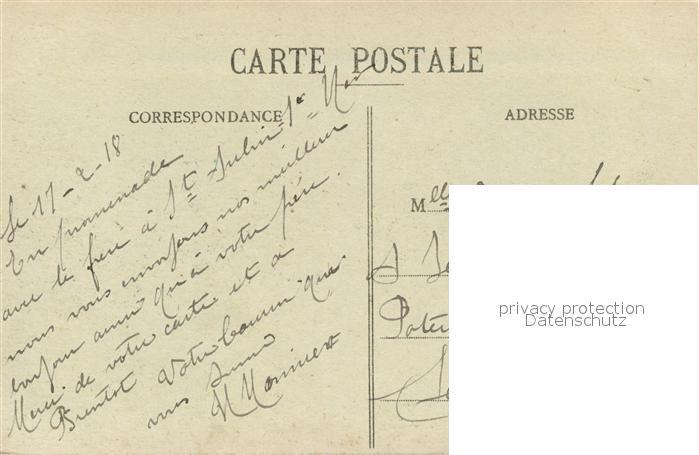 CARTE POSTALE
CORRESPONDANCE
ADRESSE
Le 17-2-18
En promenade
avec le frère à St Aubin-Sr-Mer
nous vous envoyons nos meilleur
bonjour ainsi qu'à votre frère.
Merci de votre carte et a
Bientot Votre Cousin qui
vous aime
Mlle
Pater
privacy protection
Datenschutz